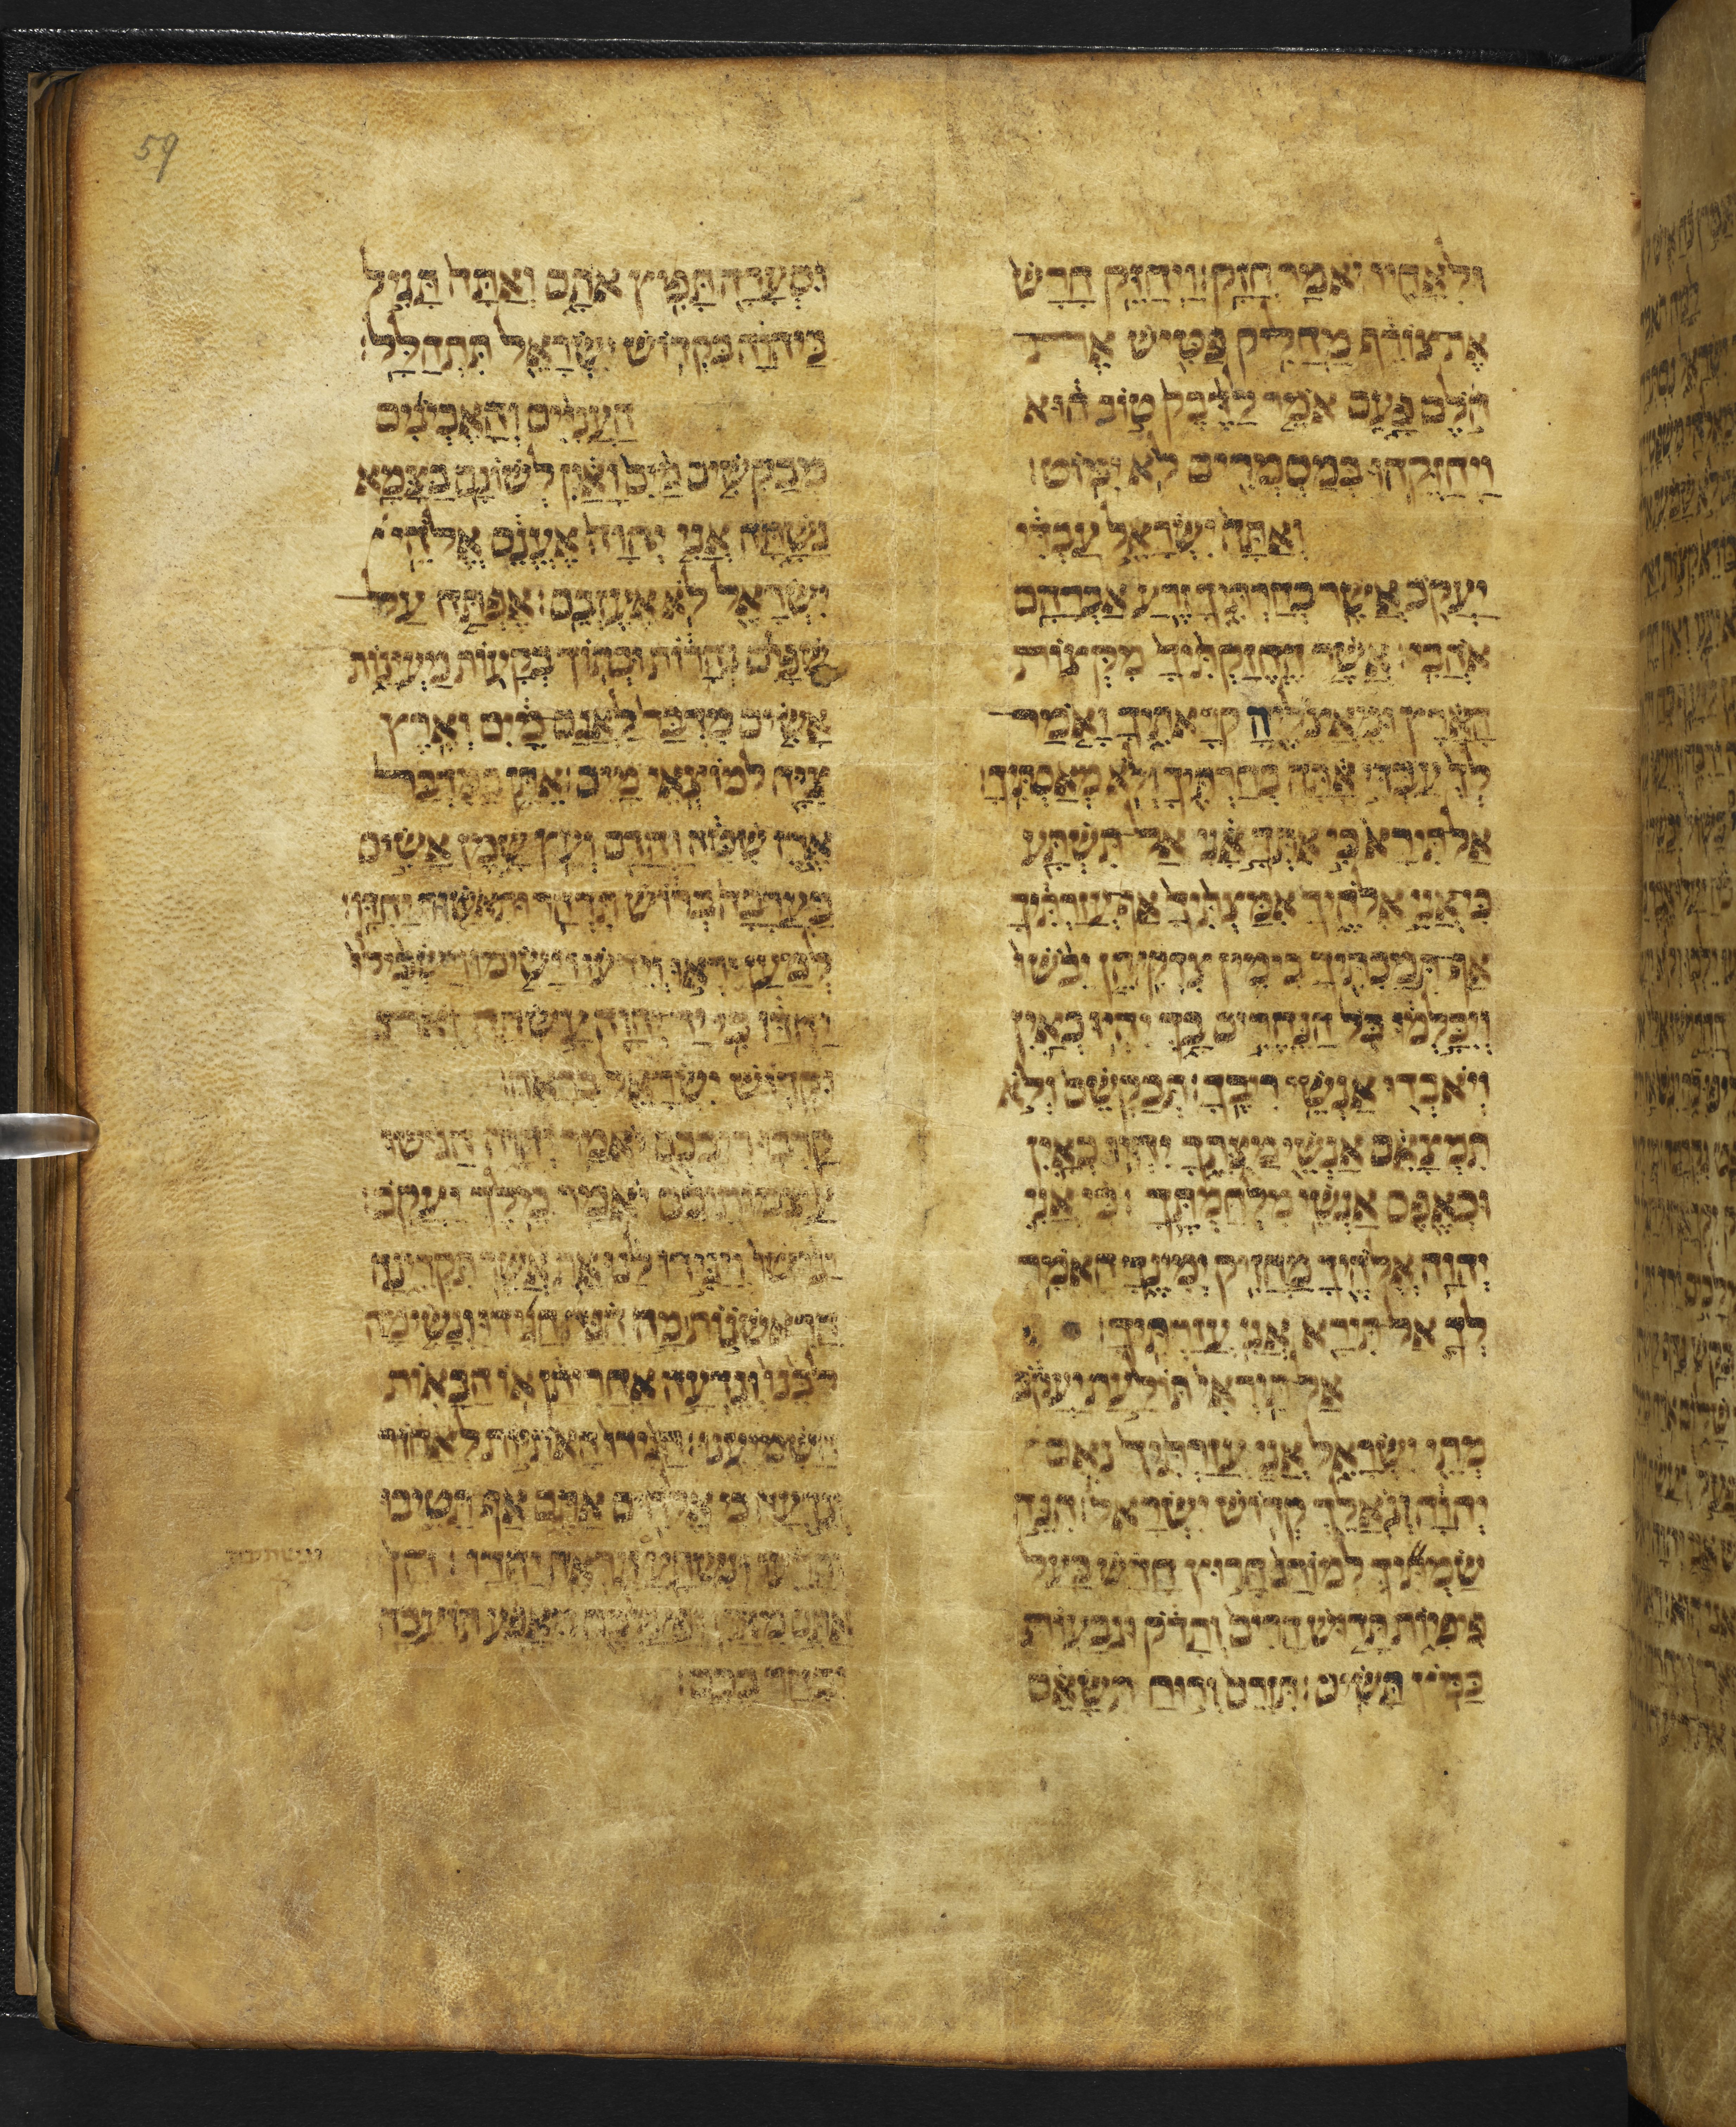 59
ולאחיו יאמר חזק׃ ויחזק חרש
את צורף מחליק פטיש את
הולם פעם אמר לדבק טוב הוא
ויחזקהו במסמרים לא ימוט׃
ואתה ישראל עבדי
יעקב אשר בחרתיך זרע אברהם
אהבי׃ אשר החזקתיך מקצות
הארץ ומאציליה קראתיך ואמר
לך עבדי אתה בחרתיך ולא מאסתיך׃
אל תירא כי אתך אני אל תשתע
כי אני אלהיך אמצתיך אף עזרתיך
אף תמכתיך בימין צדקי׃ הן יבשו
ויכלמו כל הנחרים בך יהיו כאין
ויאבדו אנשי ריבך׃ תבקשם ולא
תמצאם אנשי מצתך יהיו כאין
וכאפס אנשי מלחמתך׃ כי אני
יהוה אלהיך מחזיק ימינך האמר
לך אל תירא אני עזרתיך׃
אל תיראי תולעת יעקב
מתי ישראל אני עזרתיך נאם
יהוה וגאלך קדוש ישראל׃ הנה
שמתיך למורג חרוץ חדש בעל
פיפיות תדוש הרים ותדק וגבעות
כמץ תשים׃ תזרם ורוח תשאם
וסערה תפיץ אתם ואתה תגיל
ביהוה בקדוש ישראל תתהלל׃
העניים והאביונים
מבקשים מים ואין לשונם בצמא
נשתה אני יהוה אענם אלהי
ישראל לא אעזבם׃ אפתח על
שפים נהרות ובתוך בקעות מעינות
אשים מדבר לאגם מים וארץ
ציה למוצאי מים׃ אתן במדבר
ארז שטה והדס ועץ שמן אשים
בערבה ברוש תדהר ותאשור יחדו׃
למען יראו וידעו וישימו וישכילו
יחדו כי יד יהוה עשתה זאת
וקדוש ישראל בראה׃
קרבו ריבכם יאמר יהוה הגישו
עצמותיכם יאמר מלך יעקב׃
יגישו ויגידו לנו את אשר תקרינה
הראשנות מה הנה הגידו ונשימה
לבנו ונדעה אחריתן או הבאות
השמיענו׃ הגידו האתיות לאחור
ונדעה כי אלהים אתם אף תיטיבו
ותרעו ונשתעה ונראה יחדו׃ הן
אתם מאין ופעלכם מאפע תועבה
יבחר בכם׃